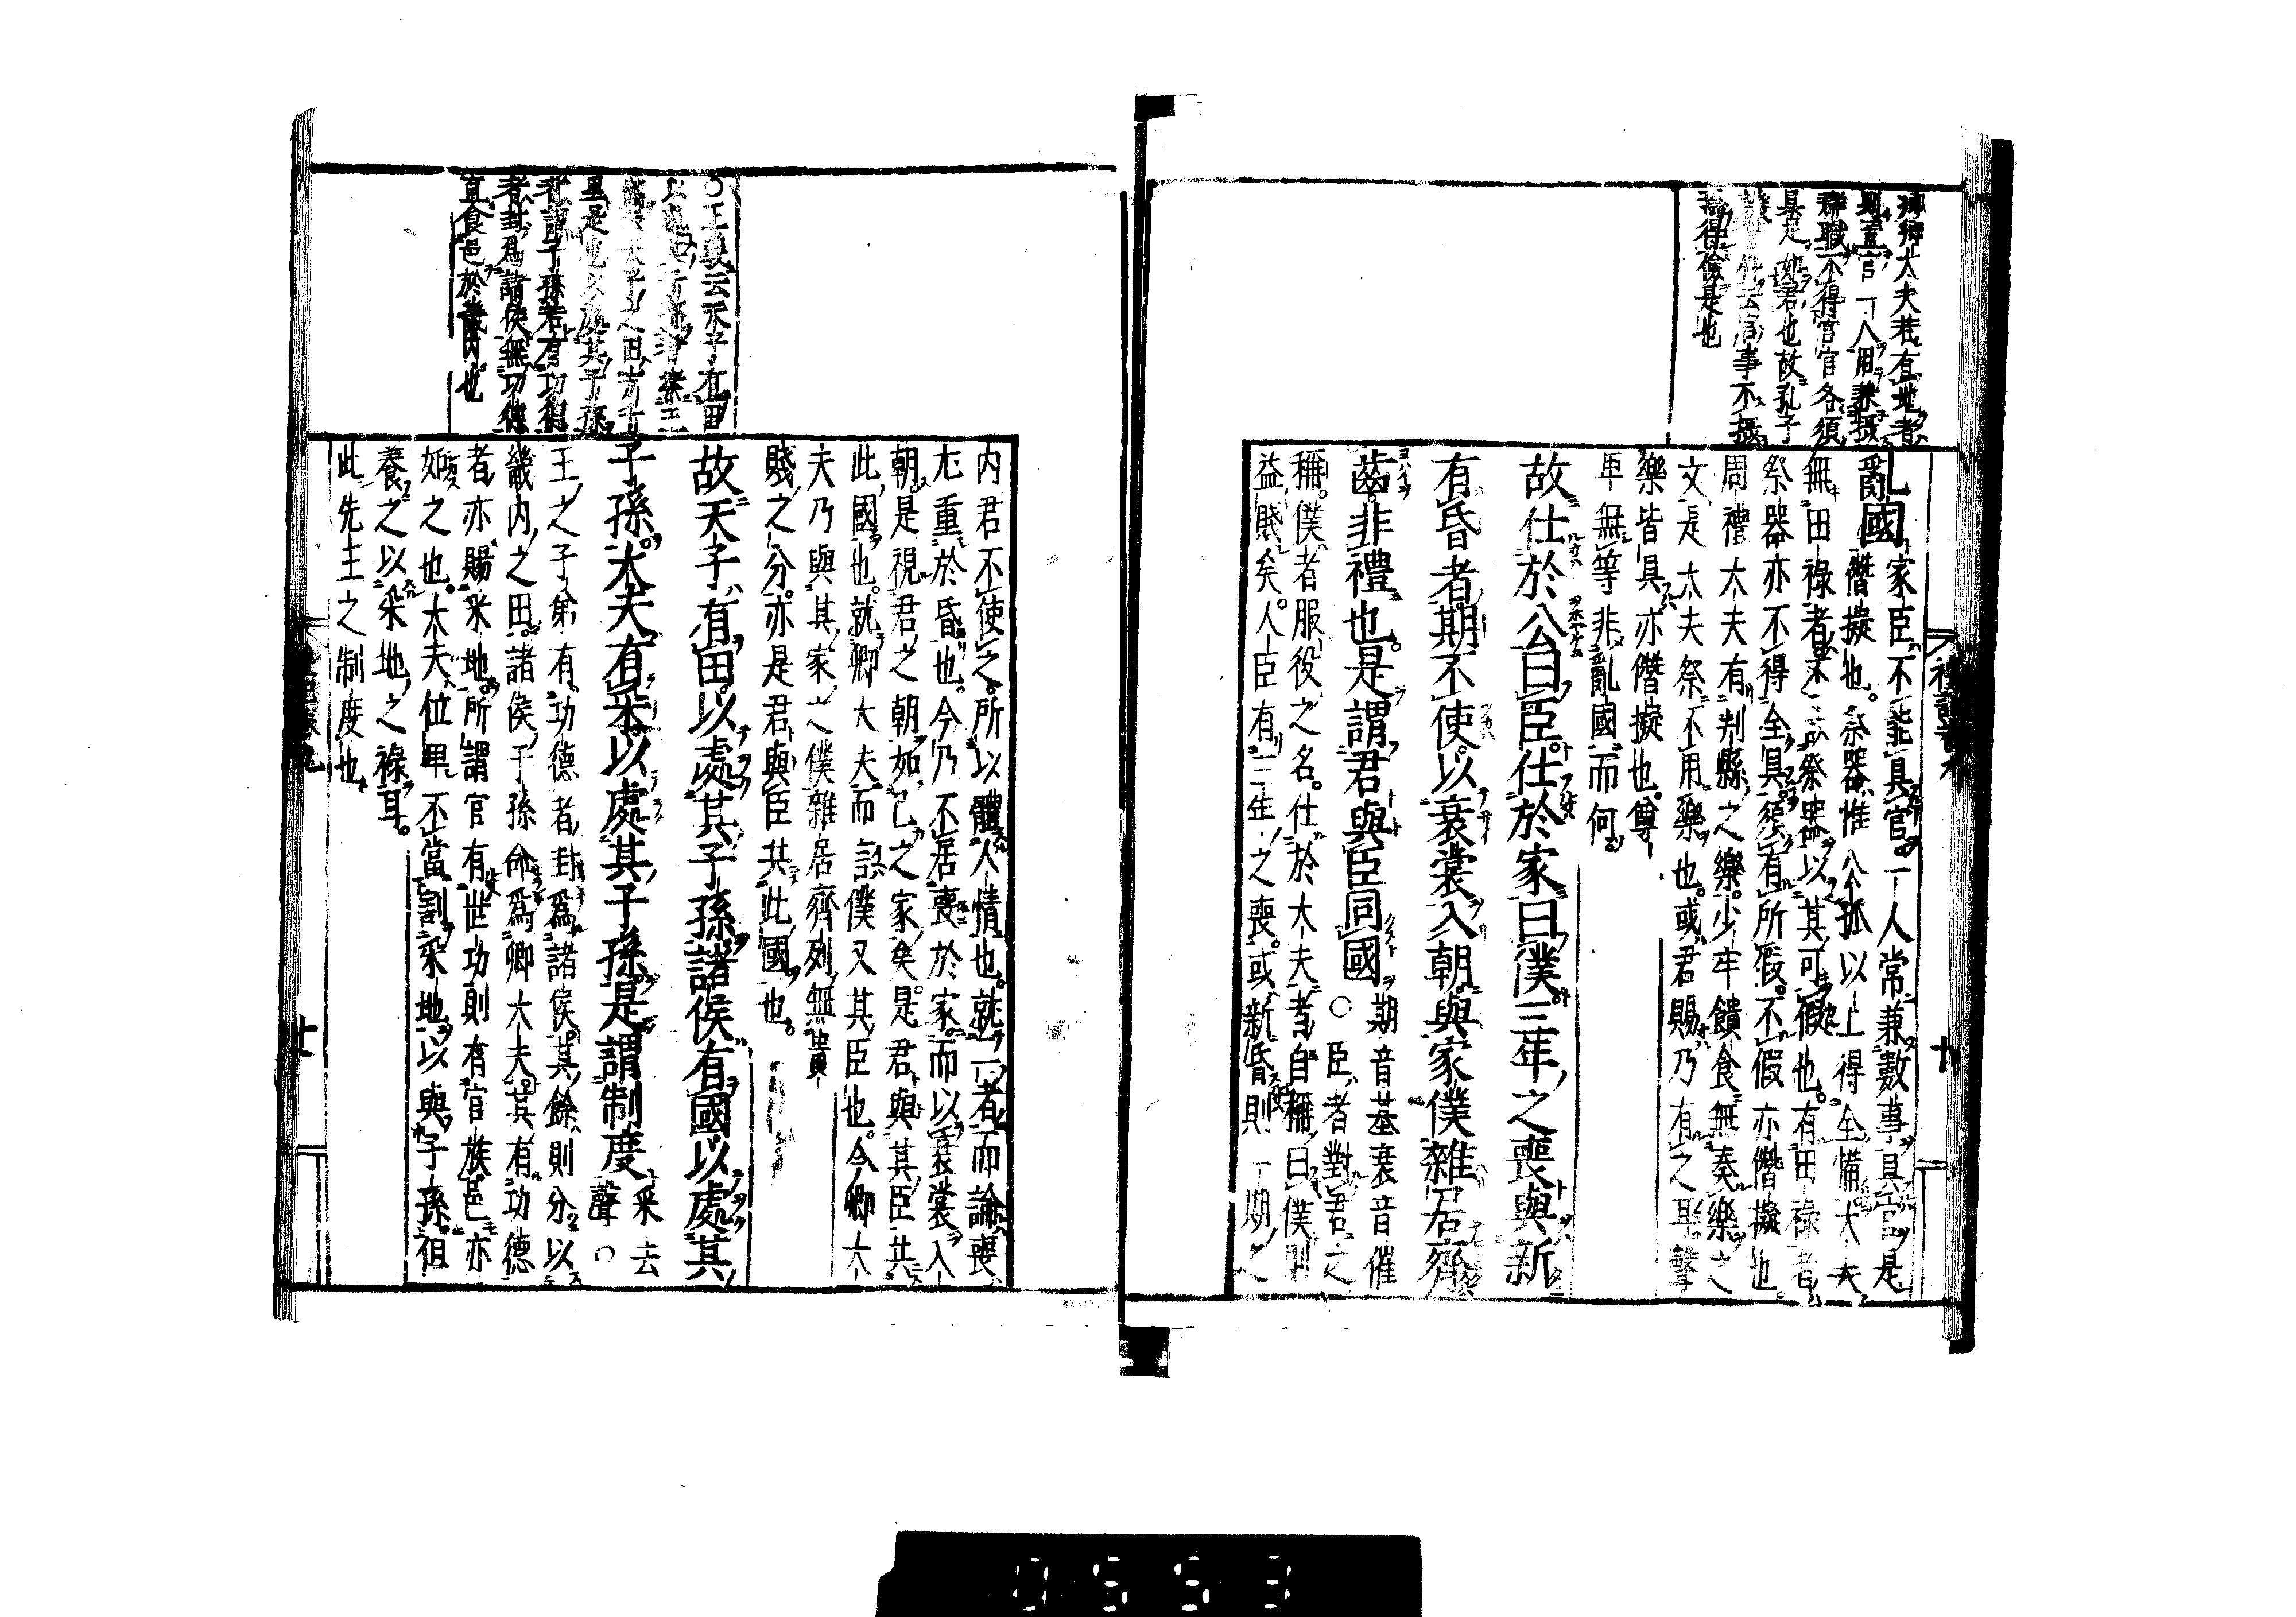 卿大夫若有地者
則置官一人用兼攝
群職不得官官各須
具足如君也故孔子
云官事不攝
焉得儉是也
亂國
家臣不能具官一人常兼數事具官是
僭擬也祭器惟公孤以上得全備大夫
無田祿者不設祭器以其可假也有田祿者
祭器亦不得全具須有所假不假亦僭擬也
周禮大夫有判縣之樂少牢饋食無奏樂之
文是大夫祭不用樂也或君賜乃有之耳聲
樂皆具亦僭擬也尊
卑無等非亂國而何
故仕於公曰臣仕於家曰僕三年之喪與新
有昏者期不使以衰裳入朝與家僕雜居齊
齒非禮也是謂君與臣同國
期音基衰音催
○臣者對君之
稱僕者服役之名仕於大夫者自稱曰僕則
益賤矣人臣有三年之喪或新昏則一期之
禮記卷九
內君不使之所以體人情也就二者而論喪
尤重於昏也今乃不居喪於家而以衰裳入
朝是視君之朝如己之家矣是君與其臣共
此國也就卿大夫而言僕又其臣也今卿大
夫乃與其家之僕雜居齊列無貴
賤之分亦是君與臣共此國也
○王制云天子有田
者謂子孫若有功德
者封爲諸侯無功德
直食邑於畿內也
故天子有田以處其子孫諸侯有國以處其
子孫大夫有采以處其子孫是謂制度
采去
聲○
王之子弟有功德者封爲諸侯其餘則分以
畿內之田諸侯子孫命爲卿大夫其有功德
者亦賜采地所謂官有世功則有官族邑亦
如之也大夫位卑不當割采地以與子孫但
養之以采地之祿耳
此先王之制度也
0553